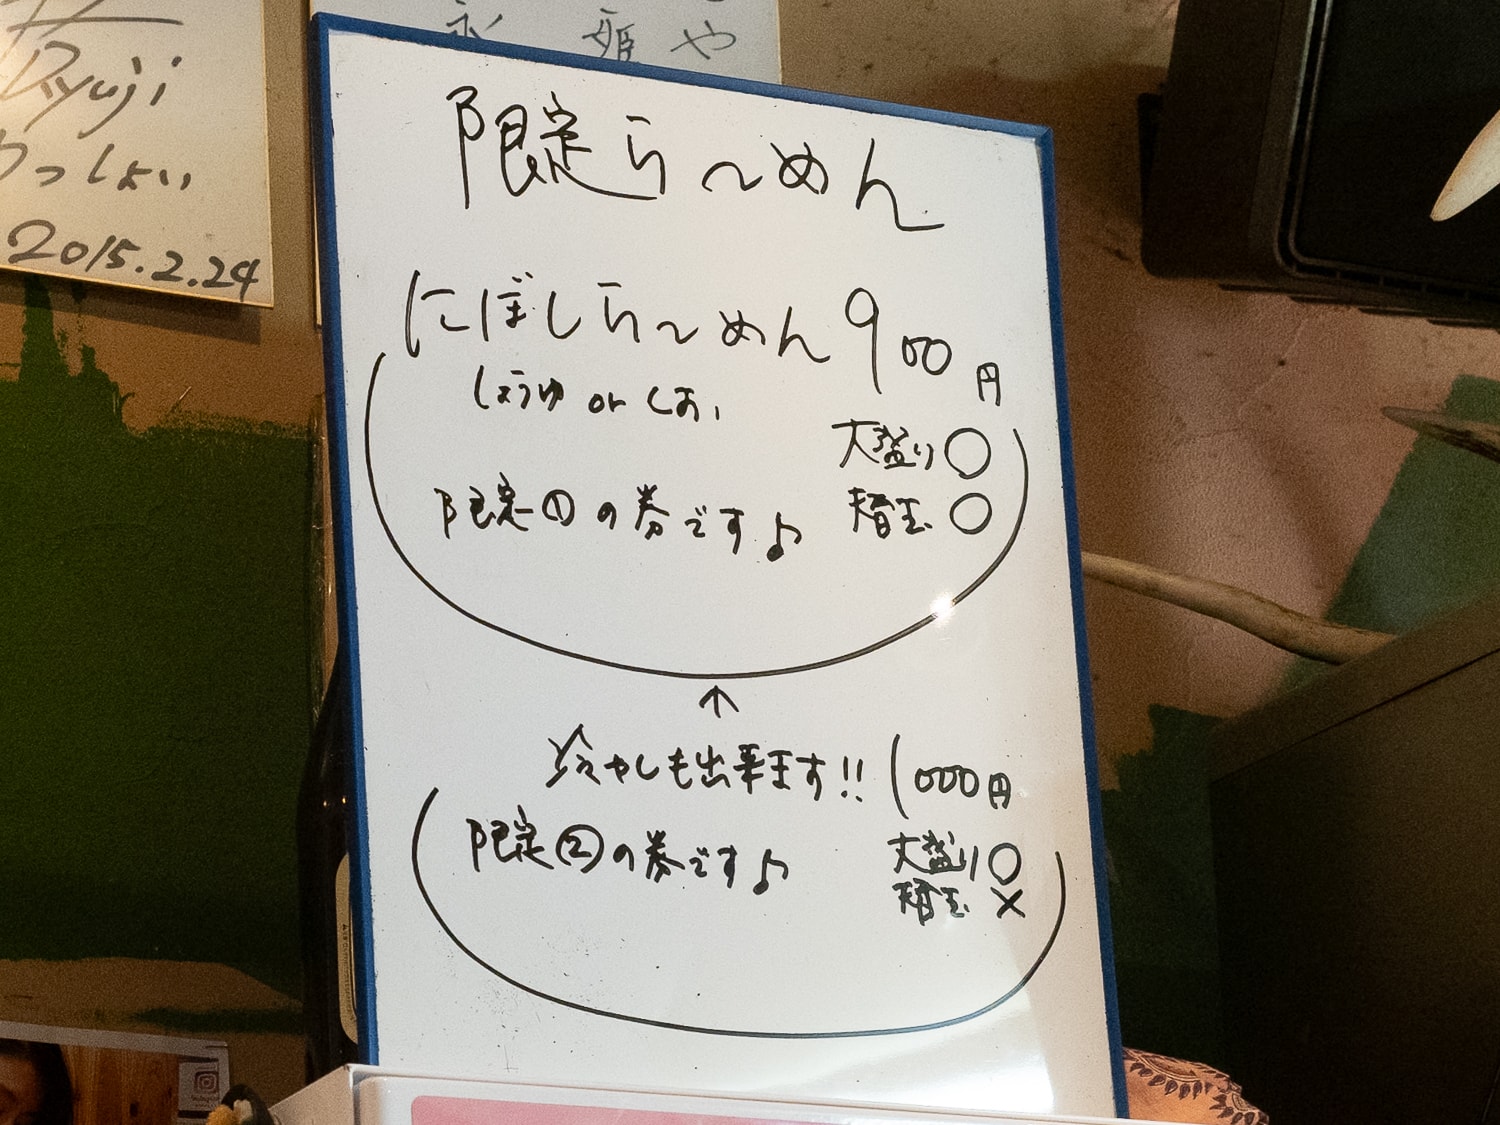 Ryuji
わっしょい
2015.2.24
姫や
限定ら〜めん
にぼしら〜めん900円
しょうゆ or しお
大盛り○
限定①の券です♪
替玉○
↑
冷やしも出来ます!! 1000円
限定②の券です♪
大盛り○
替玉×